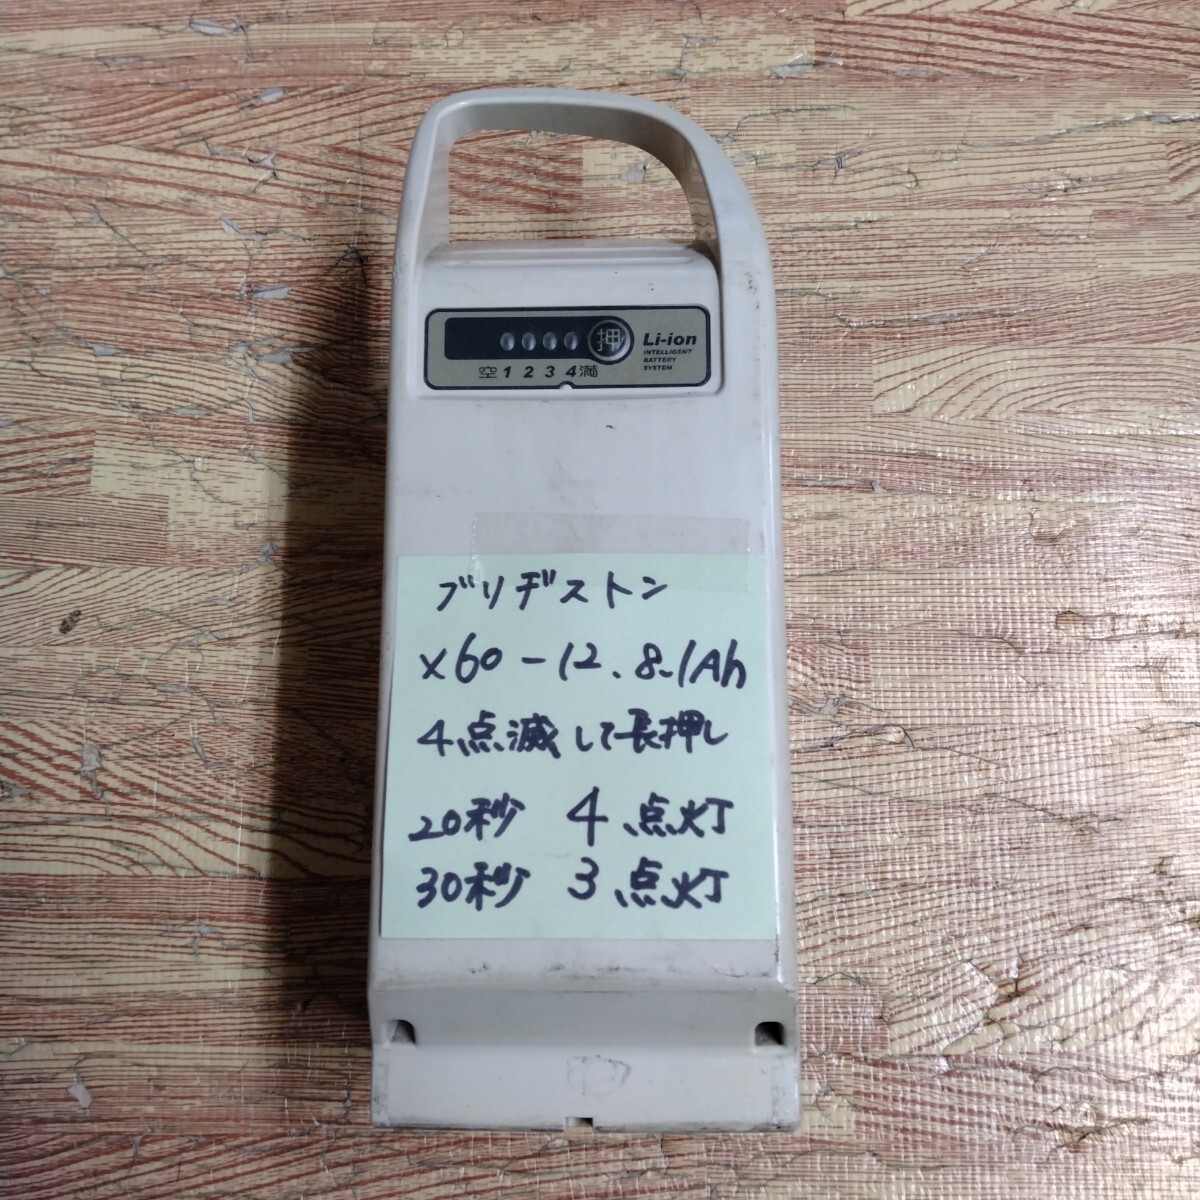 押
Li-ion
INTELLIGENT
BATTERY
SYSTEM
空 1 2 3 4 満
ブリヂストン
X60-12.8.1Ah
4点滅して長押し
20秒 4点灯
30秒 3点灯